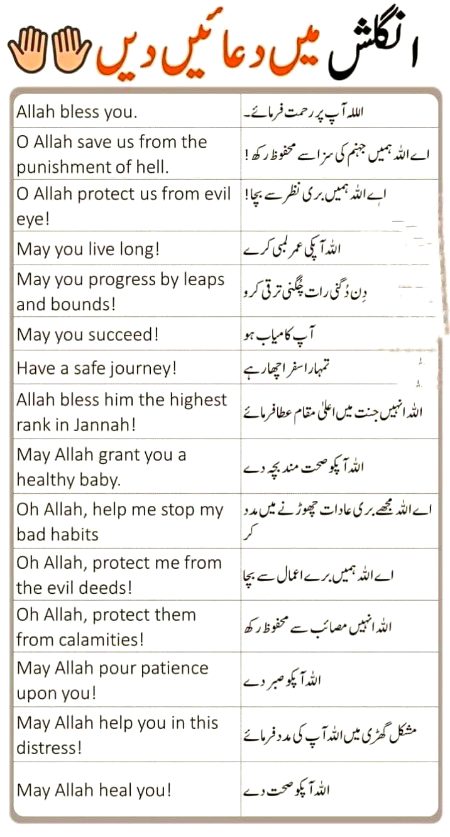 انگلش میں دعائیں دیں
Allah bless you.
اللہ آپ پر رحمت فرمائے۔
O Allah save us from the
punishment of hell.
اے اللہ ہمیں جہنم کی سزا سے محفوظ رکھ!
O Allah protect us from evil
eye!
اے اللہ ہمیں بری نظر سے بچا!
May you live long!
اللہ آپکی عمر لمبی کرے
May you progress by leaps
and bounds!
دِن دُگنی رات چُگنی ترقی کرو
May you succeed!
آپ کامیاب ہو
Have a safe journey!
تمہارا سفر اچھا رہے
Allah bless him the highest
rank in Jannah!
اللہ انہیں جنت میں اعلیٰ مقام عطا فرمائے
May Allah grant you a
healthy baby.
اللہ آپکو صحت مند بچہ دے
Oh Allah, help me stop my
bad habits
اے اللہ مجھے بری عادات چھوڑنے میں مدد
کر
Oh Allah, protect me from
the evil deeds!
اے اللہ ہمیں برے اعمال سے بچا
Oh Allah, protect them
from calamities!
اللہ انہیں مصائب سے محفوظ رکھ
May Allah pour patience
upon you!
اللہ آپکو صبر دے
May Allah help you in this
distress!
مشکل گھڑی میں اللہ آپ کی مدد فرمائے
May Allah heal you!
اللہ آپکو صحت دے